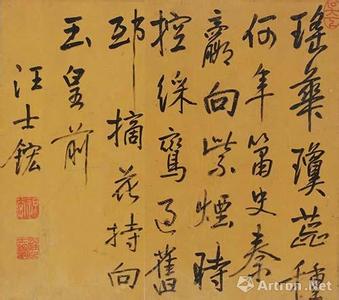 瑶華瓊蕊種
何年簫史秦
嬴向紫煙時
控綵鸞過舊
邸摘花持向
玉皇前
汪士鋐
Artron.Net